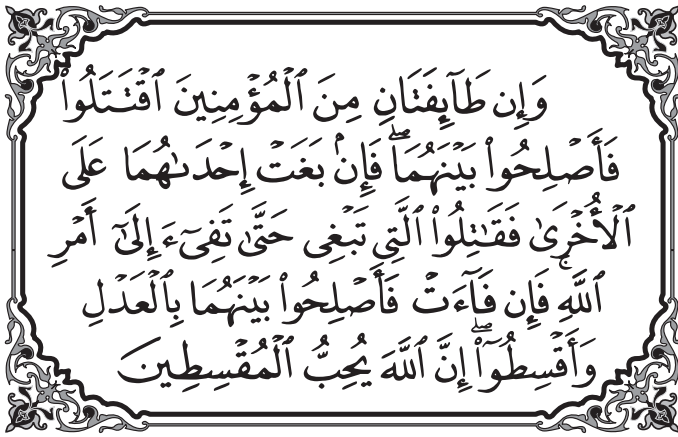 وَإِن طَآئِفَتَانِ مِنَ ٱلْمُؤْمِنِينَ ٱقْتَتَلُوا۟
فَأَصْلِحُوا۟ بَيْنَهُمَا ۖ فَإِنۢ بَغَتْ إِحْدَىٰهُمَا عَلَى
ٱلْأُخْرَىٰ فَقَـٰتِلُوا۟ ٱلَّتِى تَبْغِى حَتَّىٰ تَفِىٓءَ إِلَىٰٓ أَمْرِ
ٱللَّهِ ۚ فَإِن فَآءَتْ فَأَصْلِحُوا۟ بَيْنَهُمَا بِٱلْعَدْلِ
وَأَقْسِطُوٓا۟ ۖ إِنَّ ٱللَّهَ يُحِبُّ ٱلْمُقْسِطِينَ